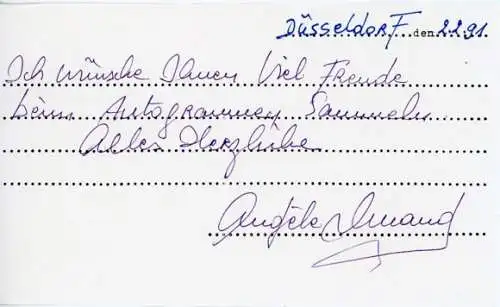 Düsseldorf, den 2.2.91.
Ich wünsche Ihnen Viel Freude
beim Autogrammen Sammeln
Alles Herzliche
Angèle Durand